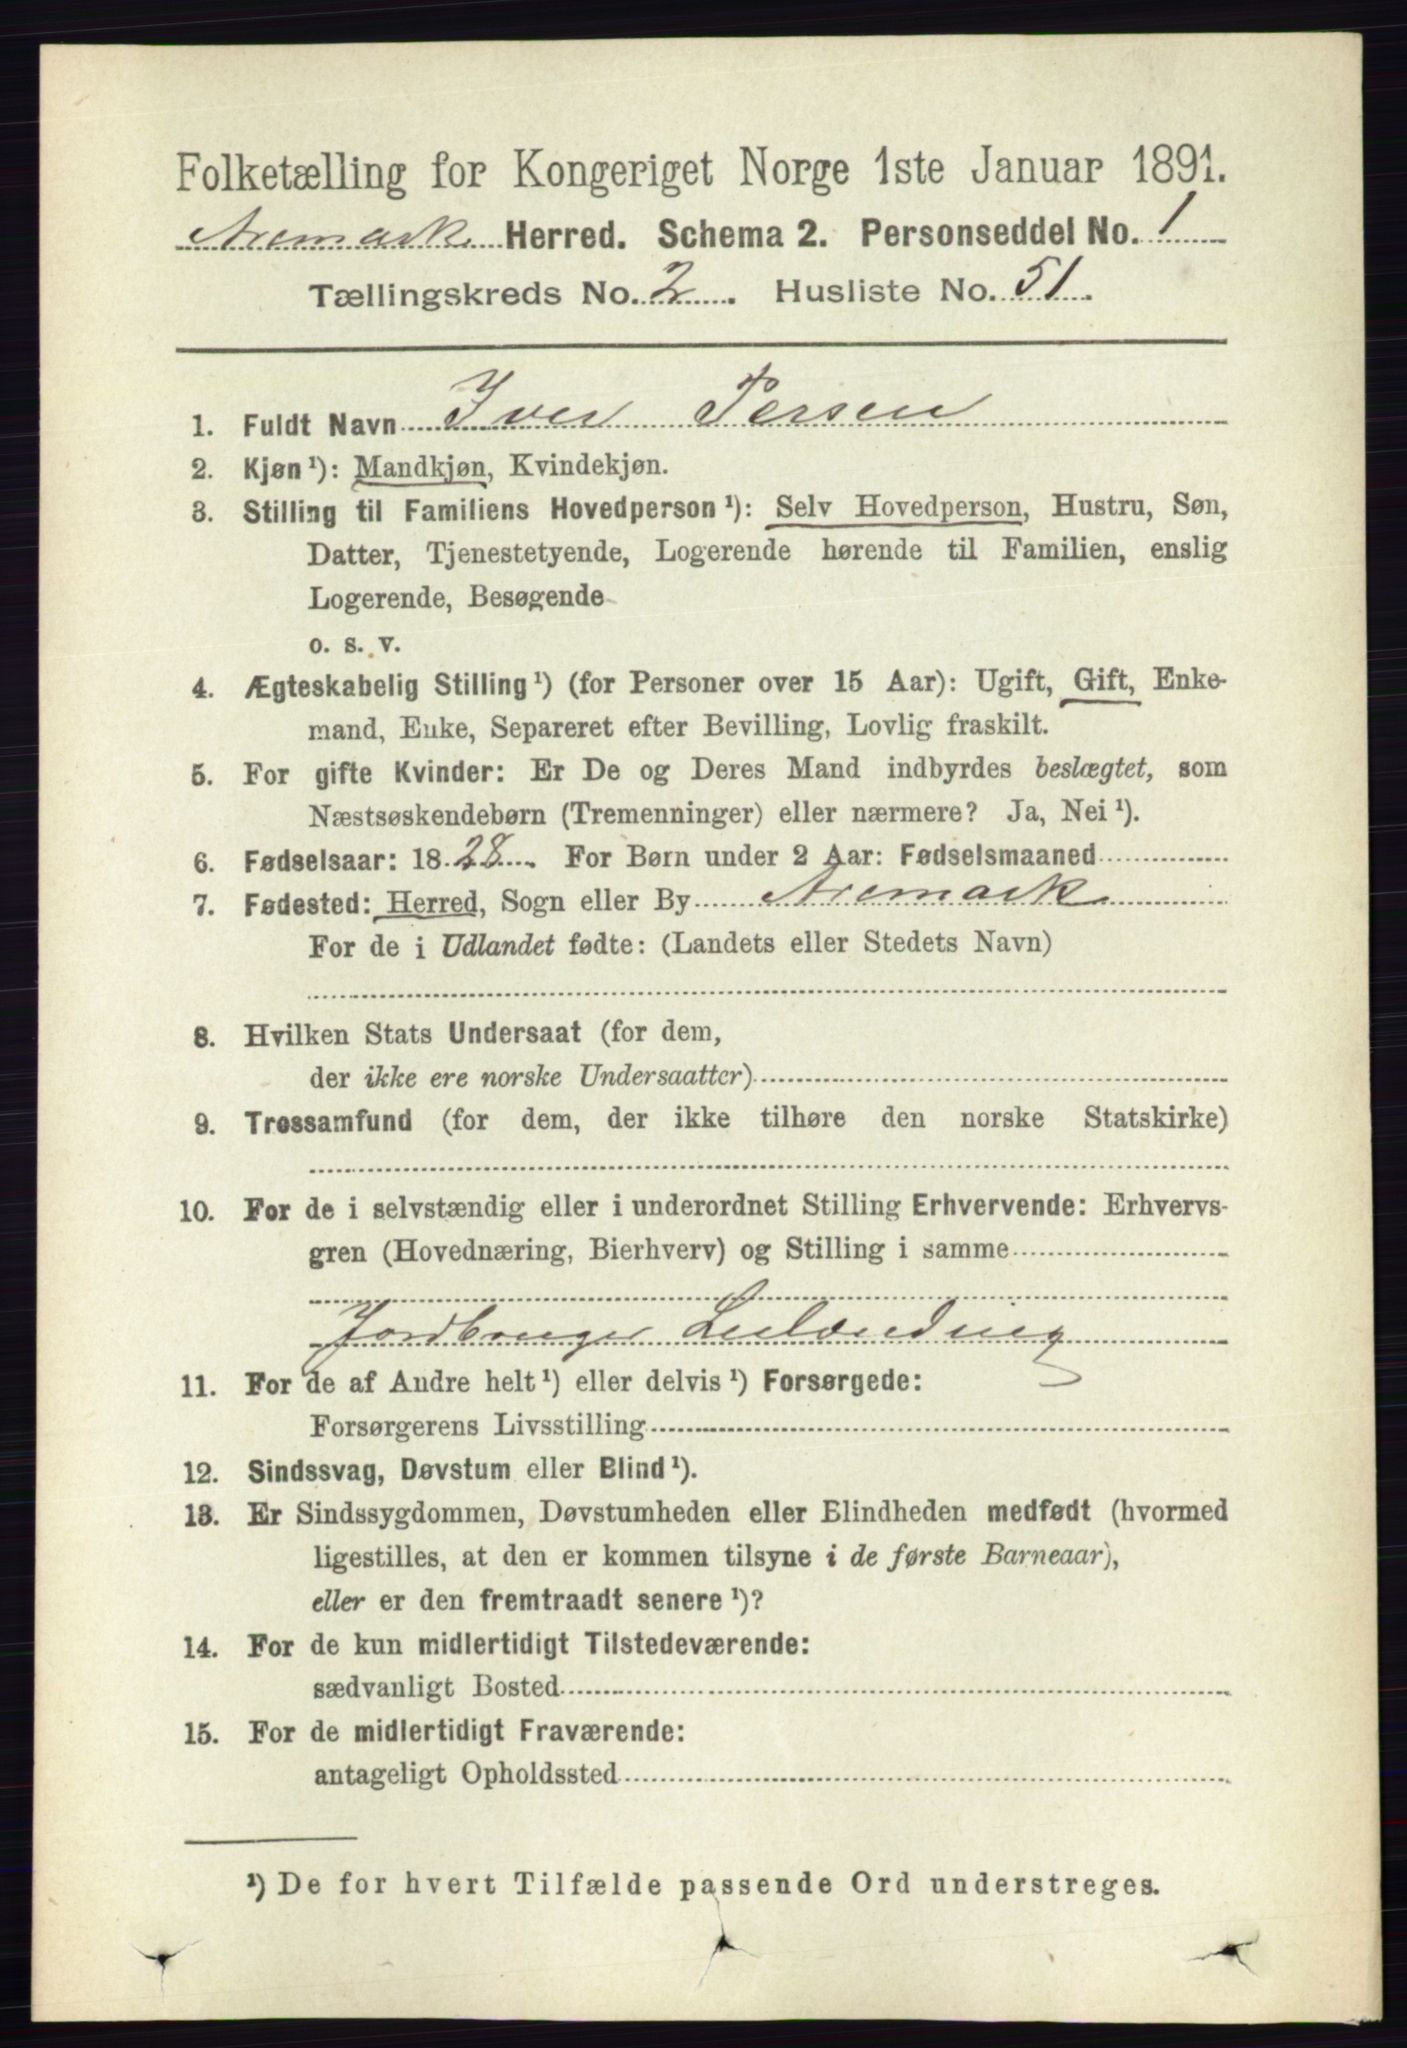 Folketælling for Kongeriget Norge 1ste Januar 1891.
Aremark Herred. Schema 2. Personseddel No. 1
Tællingskreds No. 2. Husliste No. 51.
1. Fuldt Navn Iver Persen
2. Kjøn ¹): Mandkjøn, Kvindekjøn.
3. Stilling til Familiens Hovedperson ¹): Selv Hovedperson, Hustru, Søn,
Datter, Tjenestetyende, Logerende hørende til Familien, enslig
Logerende, Besøgende
o. s. v.
4. Ægteskabelig Stilling ¹) (for Personer over 15 Aar): Ugift, Gift, Enke-
mand, Enke, Separeret efter Bevilling, Lovlig fraskilt.
5. For gifte Kvinder: Er De og Deres Mand indbyrdes beslægtet, som
Næstsøskendebørn (Tremenninger) eller nærmere? Ja, Nei ¹).
6. Fødselsaar: 1828. For Børn under 2 Aar: Fødselsmaaned
7. Fødested: Herred, Sogn eller By Aremark
For de i Udlandet fødte: (Landets eller Stedets Navn)
8. Hvilken Stats Undersaat (for dem,
der ikke ere norske Undersaatter)
9. Trossamfund (for dem, der ikke tilhøre den norske Statskirke)
10. For de i selvstændig eller i underordnet Stilling Erhvervende: Erhvervs-
gren (Hovednæring, Bierhverv) og Stilling i samme
Jordbruger Leilænding
11. For de af Andre helt ¹) eller delvis ¹) Forsørgede:
Forsørgerens Livsstilling
12. Sindssvag, Døvstum eller Blind ¹).
13. Er Sindssygdommen, Døvstumheden eller Blindheden medfødt (hvormed
ligestilles, at den er kommen tilsyne i de første Barneaar),
eller er den fremtraadt senere ¹)?
14. For de kun midlertidigt Tilstedeværende:
sædvanligt Bosted
15. For de midlertidigt Fraværende:
antageligt Opholdssted
¹) De for hvert Tilfælde passende Ord understreges.